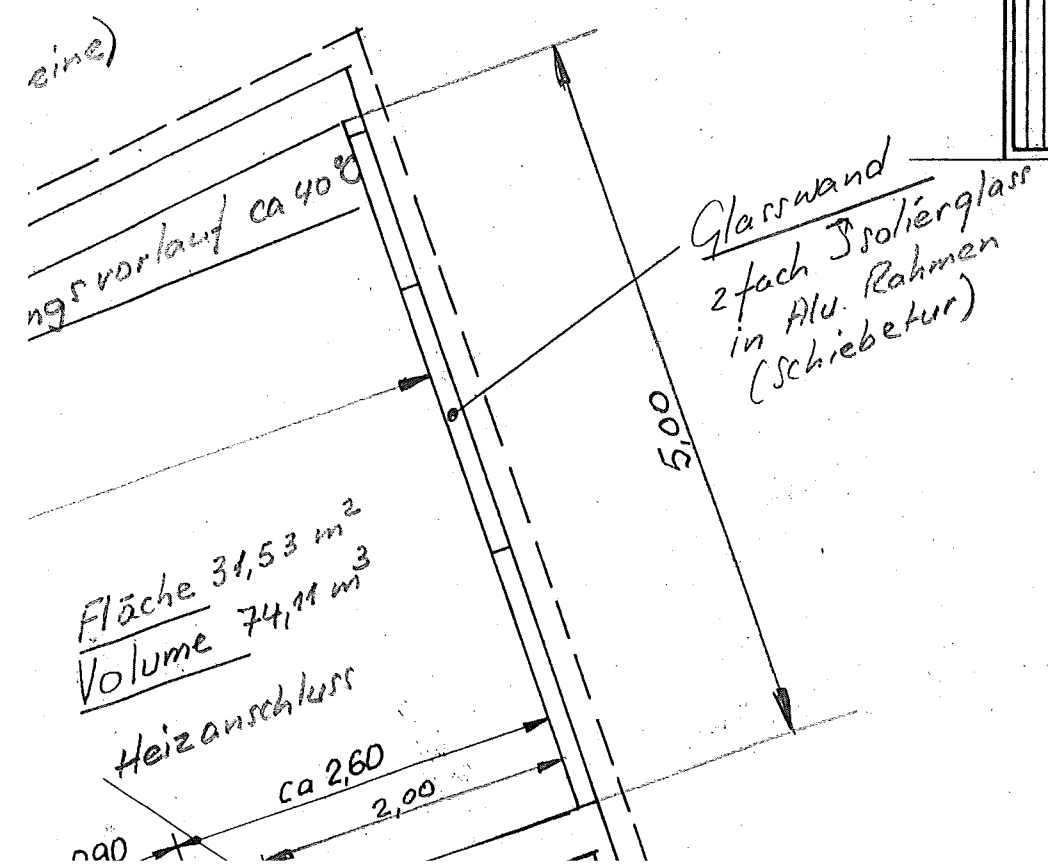 eine)
ngsvorlauf ca 40°C
Glasswand
2fach Isolierglass
in Alu. Rahmen
(Schiebetur)
5,00
Fläche 31,53 m²
Volume 74,11 m³
Heizanschluss
ca 2,60
2,00
090